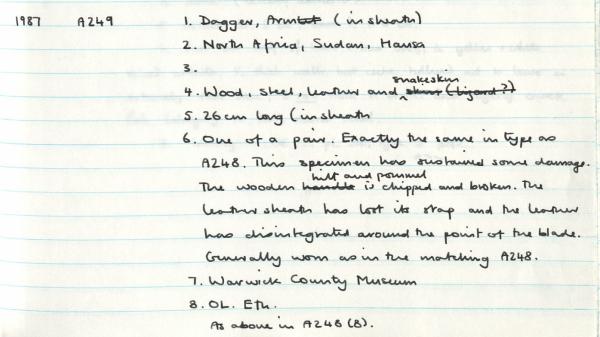 1987 A249 1. Dagger, Armlet (in sheath)
2. North Africa, Sudan, Hausa
3.
snakeskin
4. Wood, steel, leather and skin (lizard?)
5. 26cm long (in sheath
6. One of a pair. Exactly the same in type as
A248. This specimen has sustained some damage.
hilt and pommel
The wooden handle is chipped and broken. The
leather sheath has lost its strap and the leather
has disintegrated around the point of the blade.
Generally worn as in the matching A248.
7. Warwick County Museum
8. OL. Eth.
As above in A248 (8).